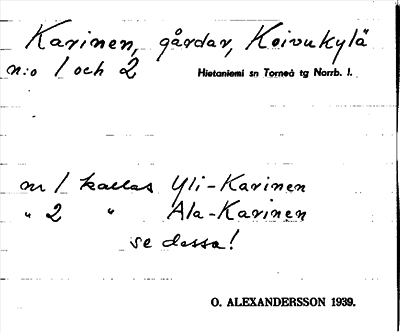 Karinen, gårdar, Koivukylä
n:o 1 och 2 Hietaniemi sn Torneå tg Norrb. l.
nr 1 kallas Yli-Karinen
" 2 " Ala-Karinen
se dessa!
O. ALEXANDERSSON 1939.